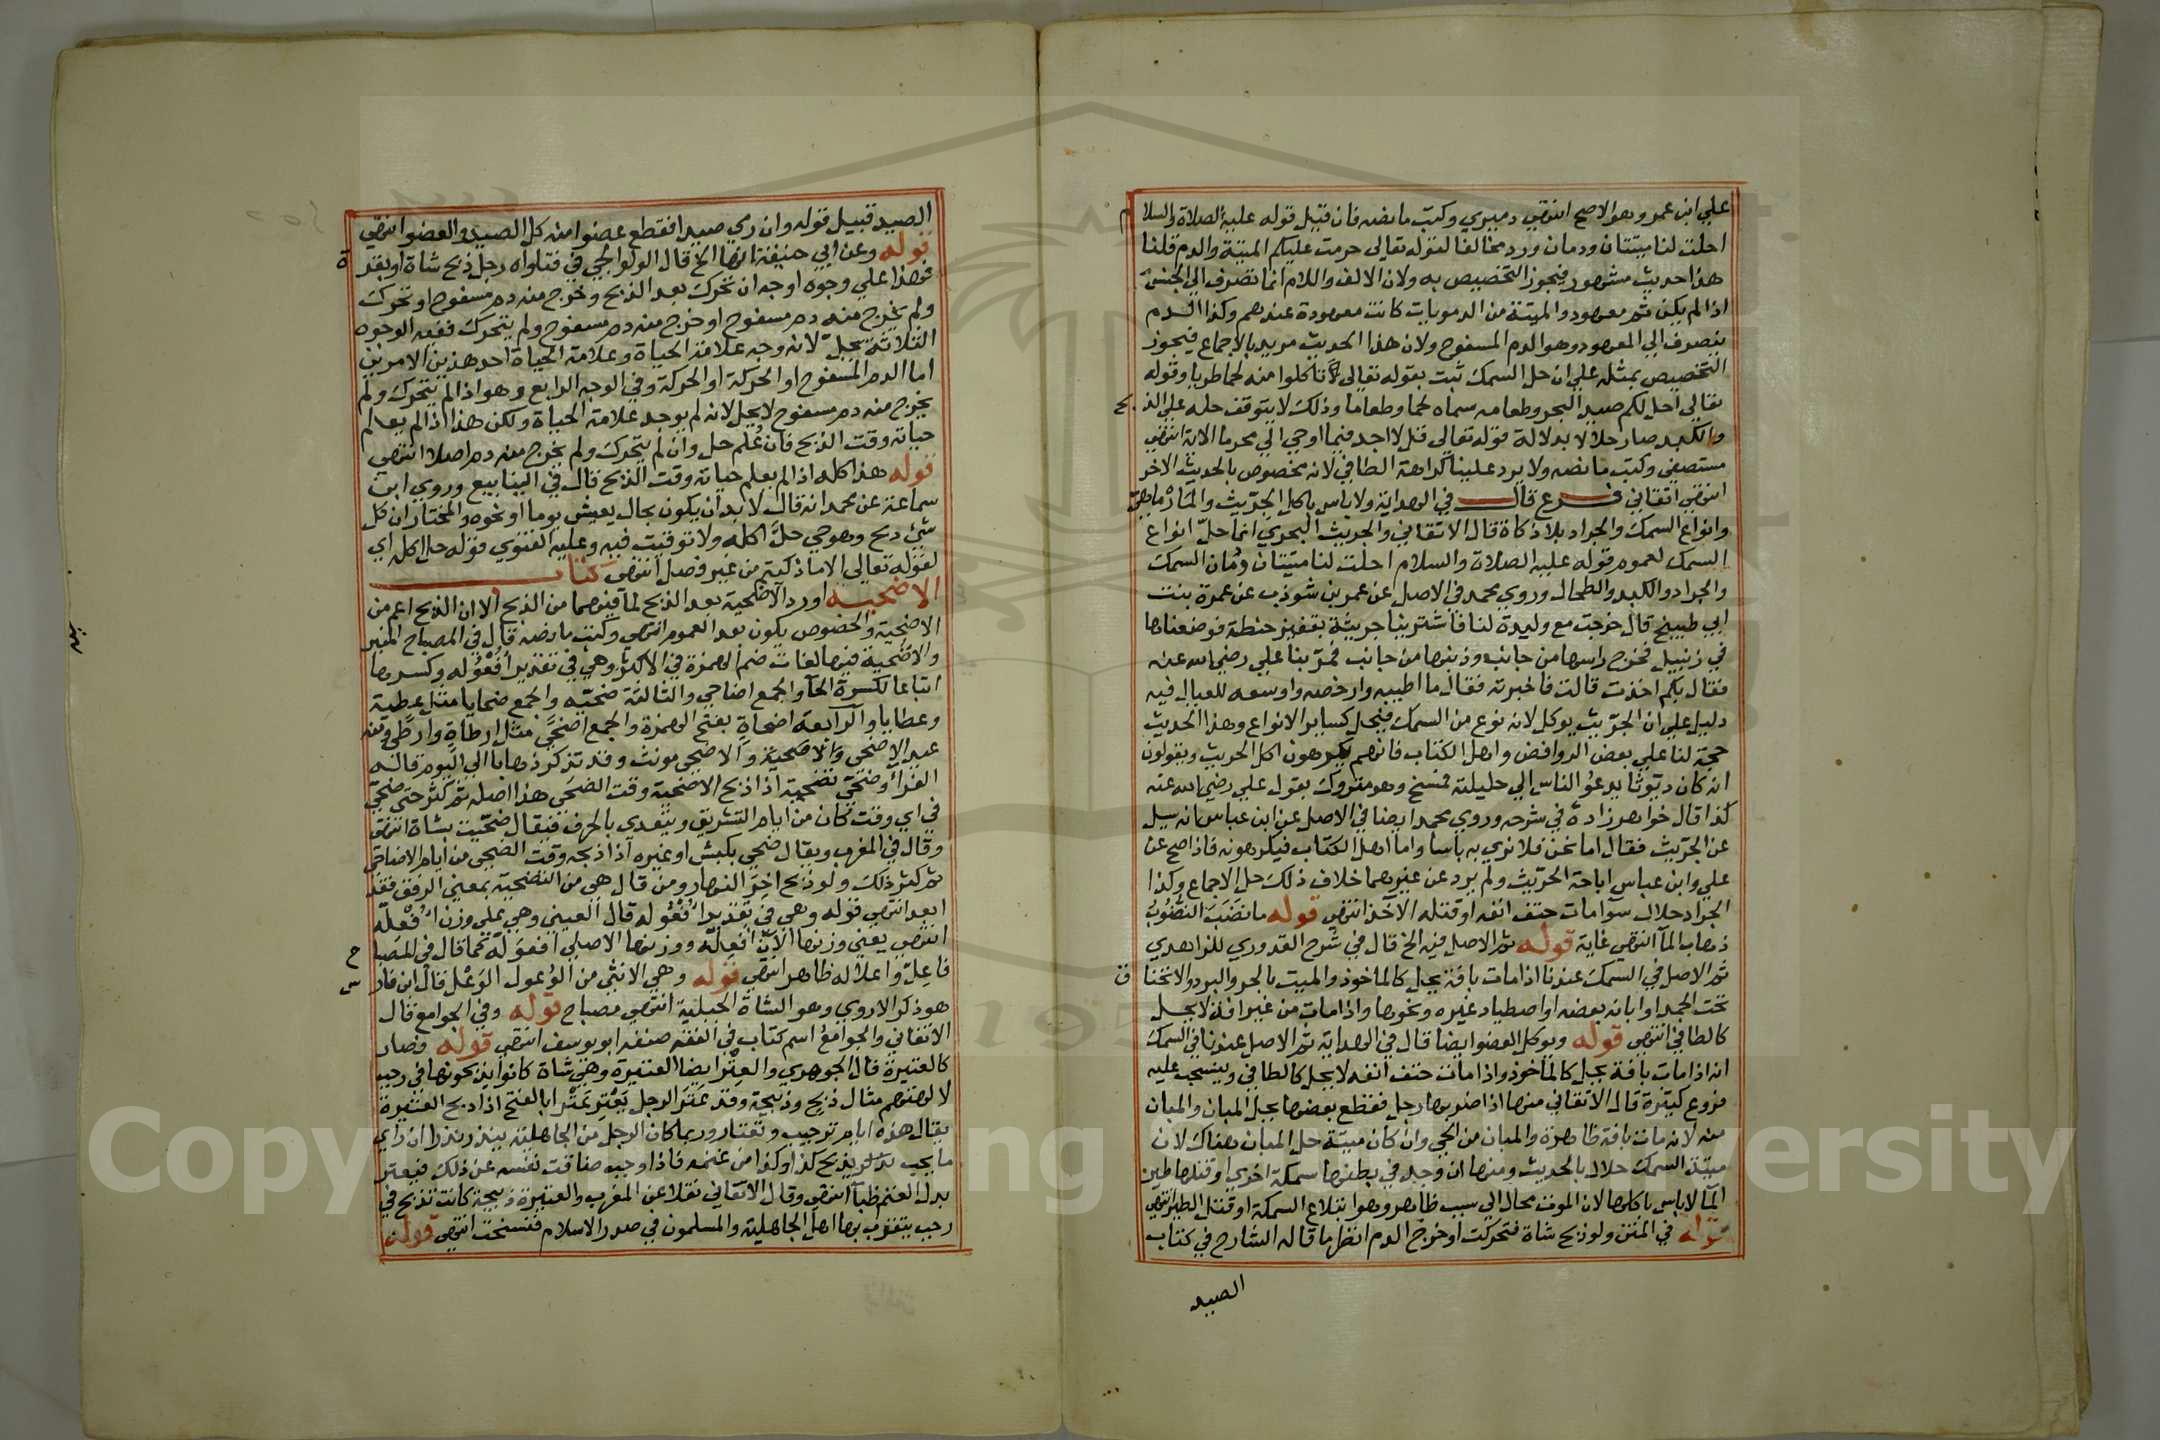 علي ابن عمر وهو الاصح انتهى دميري وكتب ما نصه فان قيل قوله عليه الصلاة والسلام
احلت لنا ميتتان ودمان ورد مخالفا لقوله تعالى حرمت عليكم الميتة والدم قلنا
هذا حديث مشهور فيجوز التخصيص به ولان الالف واللام انما تصرف الي الجنس
اذا لم يكن ثم معهود والميتة من الدمويات كانت معهودة عندهم وكذا الدم
ينصرف الي المعهود وهو الدم المسفوح ولان هذا الحديث مريد بالاجماع فيجوز
التخصيص بمثله علي ان حل السمك ثبت بقوله تعالى لتاكلوا منه لحما طريا وقوله
تعالى احل لكم صيد البحر وطعامه سماه لحما وطعاما وذلك لا يتوقف حله علي الذبح
والكبد صار حلالا بدلالة قوله تعالى قل لا اجد فيما اوحي الي محرما الاية انتهى
مستصفى وكتب ما نصه ولا يرد علينا كراهة الطافي لانه مخصوص بالحديث الاخر
انتهى اتقاني فرع قال في الهداية ولا باس باكل الجريث والمارماهي
وانواع السمك والجراد بلا ذكاة قال الاتقاني والجريث البحري انما حل انواع
السمك لعموم قوله عليه الصلاة والسلام احلت لنا ميتتان ودمان السمك
والجراد والكبد والطحال وروي محمد في الاصل عن عمر بن شوذب عن عمرة بنت
ابي طبيخ قال خرجت مع وليدة لنا فاشترينا جريثة بقفيز حنطة فوضعناها
في زنبيل فخرج راسها من جانب وذنبها من جانب فمر بنا علي رضي الله عنه
فقال بكم اخذت قالت فاخبرته فقال ما اطيبه وارخصه واوسعه للعيال فيه
دليل علي ان الجريث يوكل لانه نوع من السمك فيحل كساير الانواع وهذا الحديث
حجة لنا علي بعض الروافض واهل الكتاب فانهم يكرهون اكل الجريث ويقولون
انه كان ديوثا يدعو الناس الي حليلته فمسخ وهو متروك بقول علي رضي الله عنه
كذا قال خواهر زاده في شرحه وروي محمد ايضا في الاصل عن ابن عباس انه سيل
عن الجريث فقال اما نحن فلا نري به باسا واما اهل الكتاب فيكرهونه فاذا صح عن
علي وابن عباس اباحة الجريث ولم يرد عن غيرهما خلاف ذلك حل الاجماع وكذا
الجراد حلال سوا مات حتف انفه او قتله الاخذ انتهى قوله ما نضب النضوب
ذهاب الما انتهى غاية قوله ثم الاصل فيه الخ قال في شرح القدوري للزاهدي
ثم الاصل في السمك عندنا اذا مات بافة يحل كالماخوذ والميت بالحر والبرد والاختناق
تحت الجمد او ابانه بعضه او اصطياد غيره ونحوها واذا مات من غير افة لا يحل
كالطافي انتهى قوله ويوكل العضو ايضا قال في الهداية ثم الاصل عندنا في السمك
انه اذا مات بافة يحل كالماخوذ واذا مات حتف انفه لا يحل كالطافي وينسحب عليه
فروع كثيرة قال الاتقاني منها اذا ضربها رجل فقطع بعضها يحل المبان والمبان
منه لانه مات بافة ظاهرة والمبان من الحي وان كان ميتة حل المبان هناك لان
ميتة السمك حلال بالحديث ومنها ان وجد في بطنها سمكة اخري او قتلها طير
الما لا باس باكلها لان الموت محال الي سبب ظاهر وهو ابتلاع السمكة او قتل الطير انتهى
قوله في المتن ولو ذبح شاة فتحركت او خرج الدم انظر ما قاله الشارح في كتاب
الصيد
الصيد قبيل قوله وان رمي صيدا فقطع عضوا منه كل الصيد والعضو انتهى
قوله وعن ابي حنيفة انها الخ قال الولوالجي في فتاواه رجل ذبح شاة او بقرة
فهذا علي وجوه اوجه ان تحرك بعد الذبح وخرج منه دم مسفوح او تحرك
ولم يخرج منه دم مسفوح او خرج منه دم مسفوح ولم يتحرك ففي الوجوه
الثلاثة يحل لانه وجد علامة الحياة وعلامة الحياة احد هذين الامرين
اما الدم المسفوح او الحركة او الحركة وفي الوجه الرابع وهو اذا لم يتحرك ولم
يخرج منه دم مسفوح لا يحل لانه لم يوجد علامة الحياة ولكن هذا اذا لم يعلم
حياته وقت الذبح فان علم حل وان لم يتحرك ولم يخرج منه دم اصلا انتهى
قوله هذا كله اذا لم يعلم حياته وقت الذبح قال في الينابيع وروي ابن
سماعة عن محمد انه قال لا بد ان يكون بحال يعيش يوما او نحوه والمختار ان كل
شي ذبح وهو حي حل اكله ولا توقيت فيه وعليه الفتوي قوله حل اكله اي
لقوله تعالى الا ما ذكيتم من غير فصل انتهى كتاب
الاضحية اورد الاضحية بعد الذبح لما فيهما من الذبح الا ان الذبح اعم من
الاضحية والخصوص يكون بعد العموم انتهى وكتب ما نصه قال في المصباح المنير
والاضحية فيها لغات ضم الهمزة في الاكثر وهي في تقدير افعولة وكسرها
اتباعا لكسرة الحا والجمع اضاحي والثالثة ضحية والجمع ضحايا مثل عطية
وعطايا والرابعة اضحاة بفتح الهمزة والجمع اضحى مثل ارطاة وارطى ومنه
عيد الاضحى والاضحية والاضحى مونث وقد تذكر ذهابا الي اليوم قاله
الفراء وضحى تضحية اذا ذبح الاضحية وقت الضحى هذا اصله ثم كثر حتى ضحى
في اي وقت كان من ايام التشريق ويتعدي بالحرف فيقال ضحيت بشاة انتهى
وقال في المغرب ويقال ضحى بكبش او غيره اذا ذبحه وقت الضحى من ايام الاضاحي
ثم كثر ذلك ولو ذبح اخر النهار ومن قال هي من التضحية بمعنى الرفق فقد
ابعد انتهى قوله وهي في تقدير افعولة قال العيني وهي علي وزن افعلة
انتهى يعني وزنها الان افعلة ووزنها الاصلي افعولة كما قال في المصباح
فاعل واعلاله ظاهر انتهى قوله وهي الانثى من الوعول الوعل قال ابن فارس
هو ذكر الاروي وهو الشاة الجبلية انتهى مصباح قوله وفي الجوامع قال
الاتقاني والجوامع اسم كتاب في الفقه صنفه ابو يوسف انتهى قوله وصار
كالعتيرة قال الجوهري والعتر ايضا العتيرة وهي شاة كانوا يذبحونها في رجب
لالهتهم مثال ذبح وذبيحة وقد عتر الرجل يعتر عترا بالفتح اذا ذبح العتيرة
يقال هذه ايام ترجيب وتعتار وربما كان الرجل من الجاهلية ينذر نذرا ان راي
ما يحب يذبح كذا وكذا من غنمه فاذا وجب ضاقت نفسه عن ذلك فيعتر
بدل الغنم ظبا انتهى وقال الاتقاني نقلا عن المغرب والعتيرة ذبيحة كانت تذبح في
رجب يتقرب بها اهل الجاهلية والمسلمون في صدر الاسلام فنسخت انتهى قوله